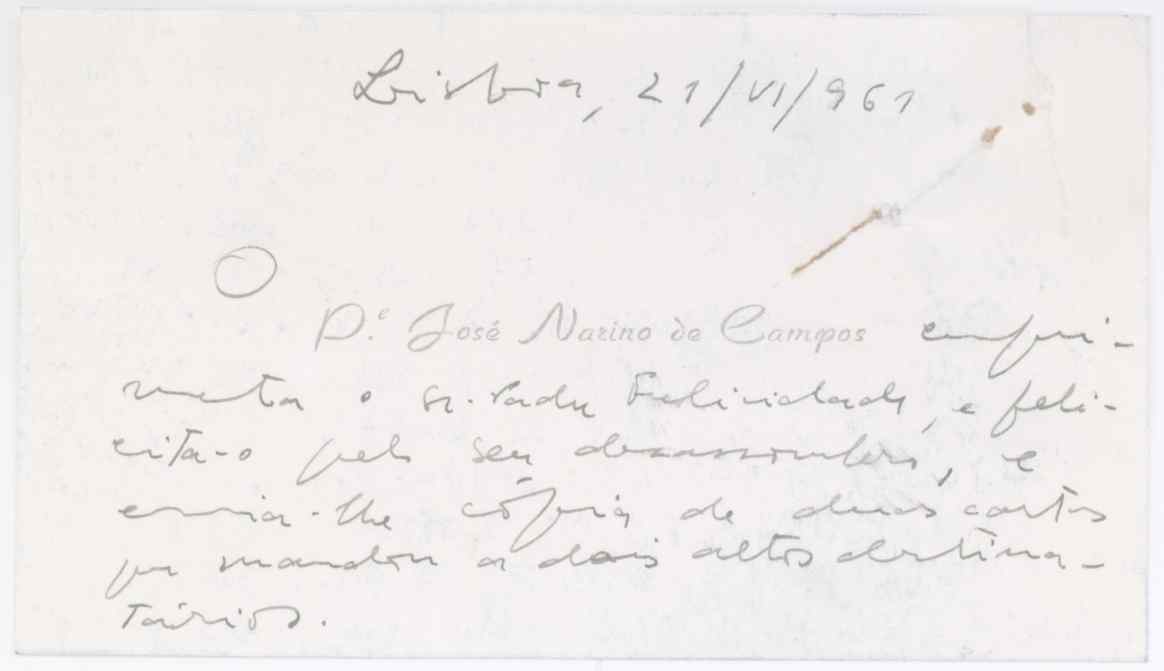 Lisboa, 21/VI/961
O
P.e José Narino de Campos cumpri-
menta o sr. Padre Felicidade, e feli-
cita-o pelo seu desassombro, e
envia-lhe cópia de duas cartas
que mandou a dois altos destina-
tários.